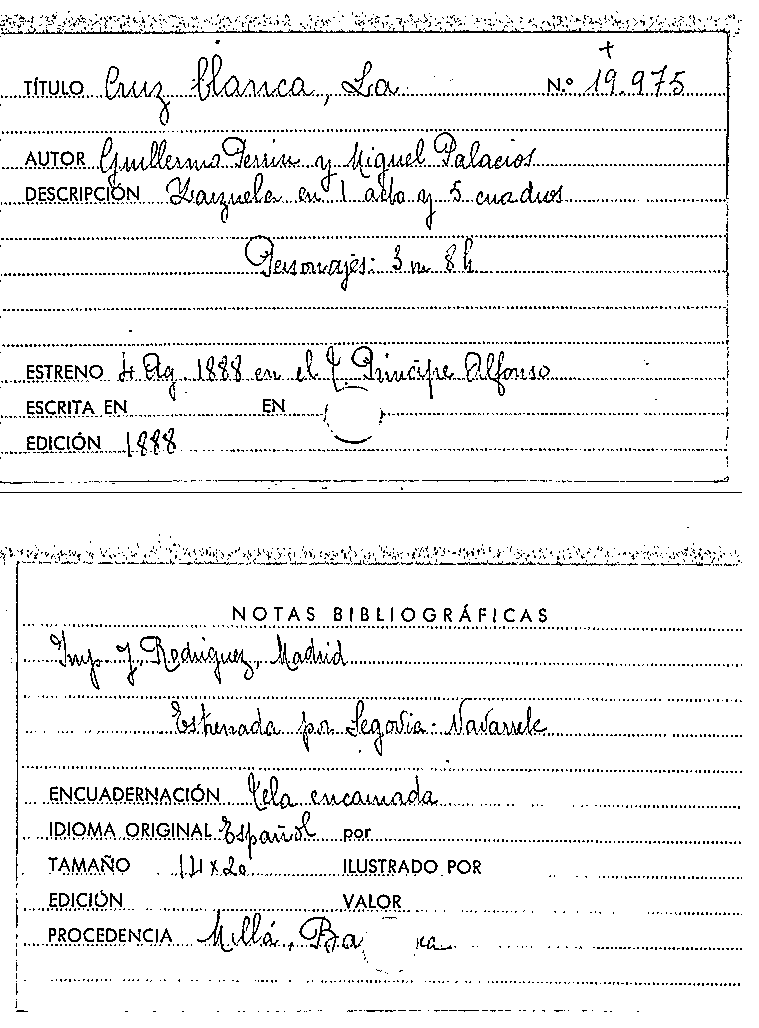 +
TÍTULO Cruz blanca, La N.º 19.975
AUTOR Guillermo Perrin y Miguel Palacios
DESCRIPCIÓN Zarzuela en 1 acto y 5 cuadros
Personajes: 3 m 8 h
ESTRENO 4 Ag. 1888 en el T. Principe Alfonso
ESCRITA EN EN
EDICIÓN 1888
NOTAS BIBLIOGRÁFICAS
Imp. J. Rodriguez, Madrid
Estrenada por Segovia - Navarrete
ENCUADERNACIÓN Tela encarnada
IDIOMA ORIGINAL Español por
TAMAÑO 14 x 20 ILUSTRADO POR
EDICIÓN VALOR
PROCEDENCIA Millá,